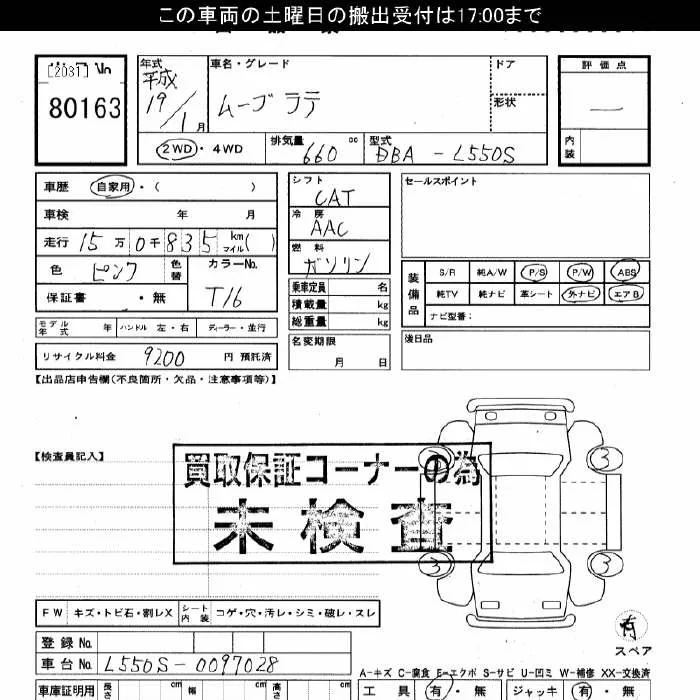 この車両の土曜日の搬出受付は17:00まで
[2031]
80163
年式
平成
19/1月
車名・グレード
ムーヴ ラテ
ドア
形状
評価点
—
内装
2WD・4WD
排気量
660 cc
型式
DBA-L550S
車歴 自家用・( )
車検 年 月
走行 15万0千835 km マイル( )
色 ピンク 色替
カラーNo.
T16
保証書 ・無
モデル年式 年 ハンドル 左・右 ディーラー・並行
リサイクル料金 9200 円 預託済
シフト
CAT
冷房
AAC
燃料
ガソリン
乗車定員 名
積載量 kg
総重量 kg
名変期限
月 日
セールスポイント
装備品
S/R 純A/W P/S P/W ABS
純TV 純ナビ 革シート 外ナビ エアB
ナビ型番:
後日品
【出品店申告欄(不良箇所・欠品・注意事項等)】
【検査員記入】
買取保証コーナーの為
未検査
3 3
3 3
有
スペア
FW キズ・トビ石・割レX シート内装 コゲ・穴・汚レ・シミ・破レ・スレ
登録No.
車台No. L550S-0097028
A-キズ C-腐食 E-エクボ S-サビ U-凹ミ W-補修 XX-交換済
車庫証明用 長さ cm 幅 cm 高さ cm
工具 有・無 ジャッキ 有・無